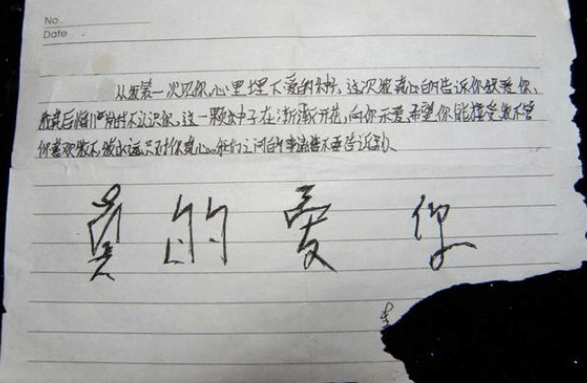 No.
Date
从我第一次见你,心里埋下爱的种子,这次我真心的告诉你我爱你,
我最后 不认识你,这一颗种子在渐渐开花,向你示爱,希望你能接受,我不管
你喜欢我不,我永远只对你真心…我们之间的事请不要告诉别人
真的爱你
李